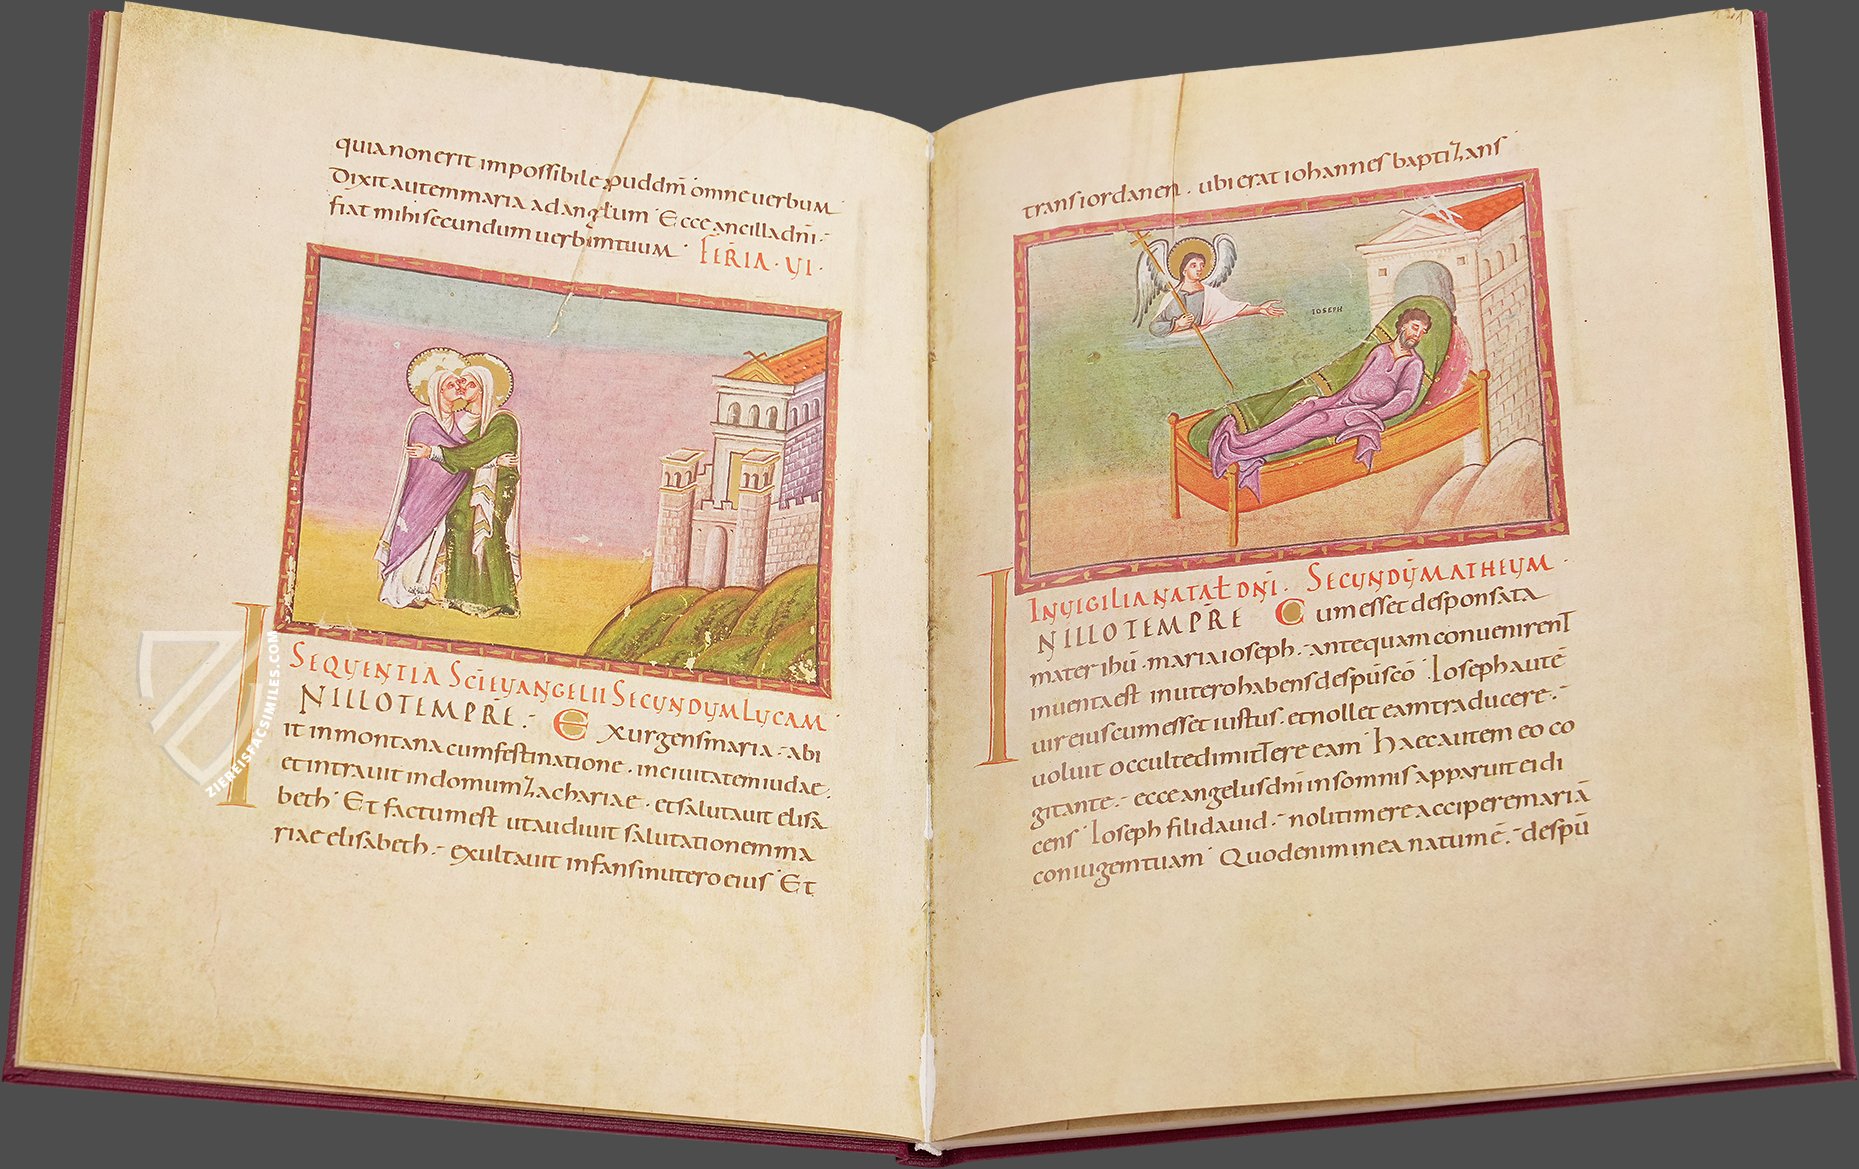 quia non erit impossibile apud dm̄ omne uerbum
Dixit autem maria ad angłum Ecce ancilla dn̄i
fiat mihi secundum uerbum tuum FERIA · VI ·
SEQUENTIA SCI EUANGELII SECUNDUM LUCAM
INILLO TEMPR̄E · Exurgens maria · abi
it in montana cum festinatione · in ciuitatem iudae ·
et intrauit in domum Zachariae · et salutauit elisa
beth Et factum est ut audiuit salutationem ma
riae elisabeth · exultauit infans in utero eius Et
ZIEREISFACSIMILES.COM
trans iordanen · ubi erat iohannes baptizans
IOSEPH
IN UIGILIA NATAŁ DNI · SECUNDŪ MATHEUM
INILLO TEMPR̄E Cum esset desponsata
mater ihū · maria ioseph · antequam conuenirent
inuenta est in utero habens de spū scō Ioseph autē
uir eius cum esset iustus · et nollet eam traducere ·
uoluit occulte dimittere eam Haec autem eo co
gitante · ecce angelus dn̄i in somnis apparuit ei di
cens Ioseph fili dauid · noli timere accipere mariā
coniugem tuam Quod enim in ea natum ē · de spū